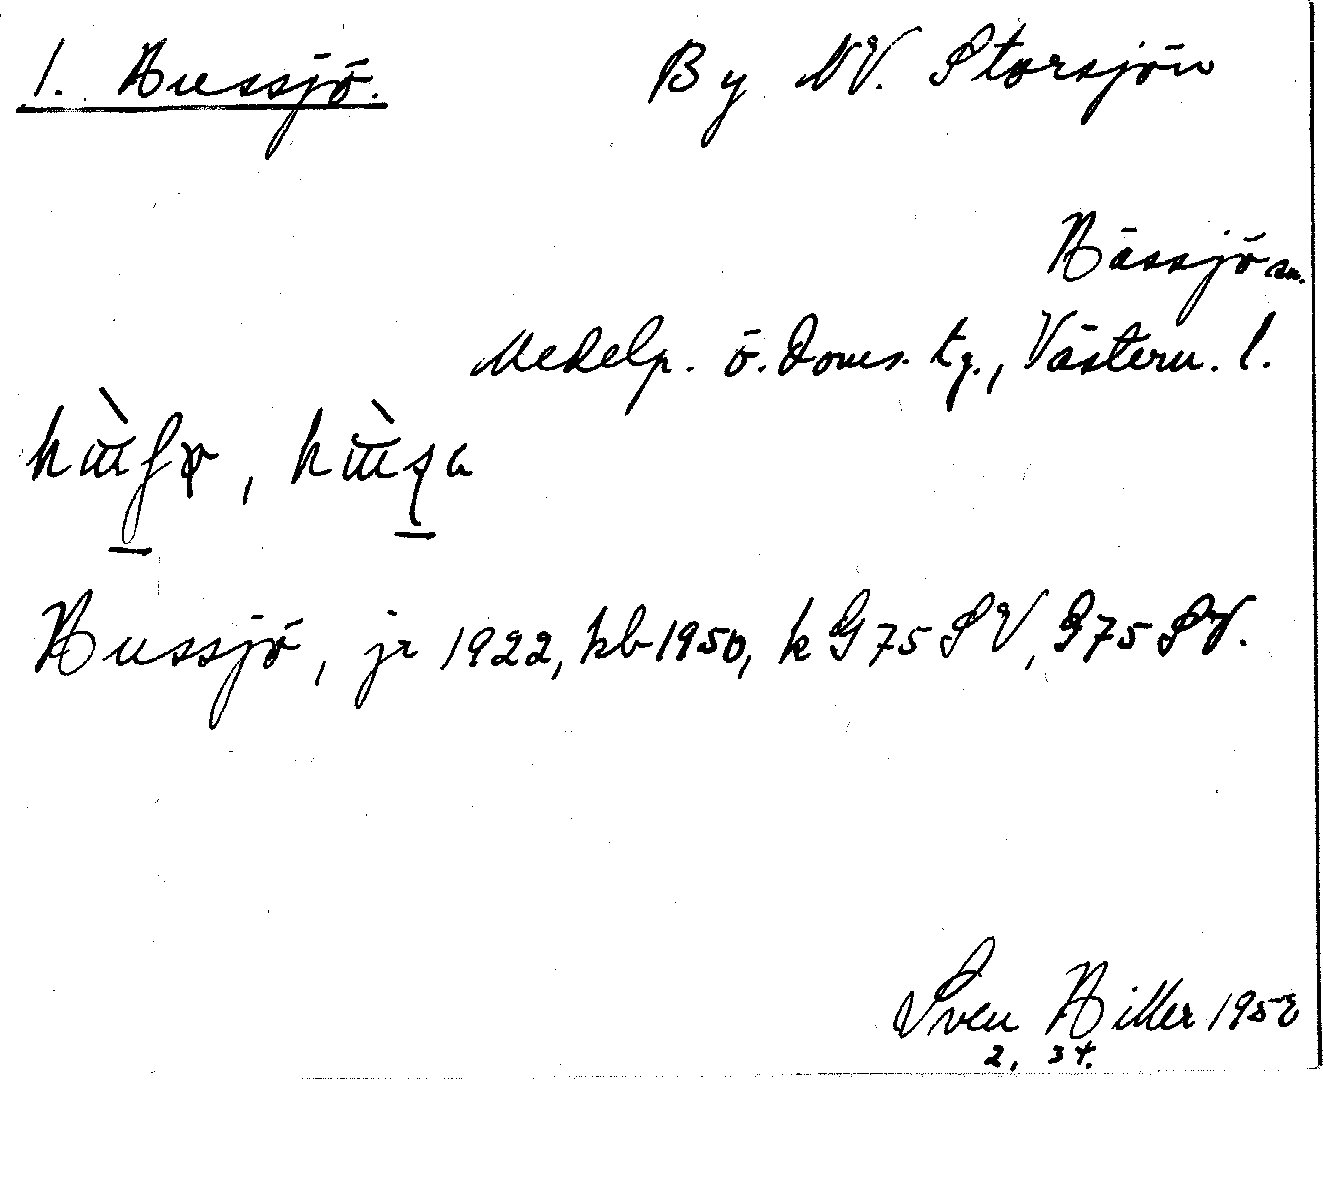 1. Hussjö. By NV. Storsjön
Hässjö sn.
Medelp. ö. doms. tg., Västern. l.
Hussjö, jr 1922, kb 1950, k G75 SV, G75 SV.
Sven Hiller 1958
2, 34.